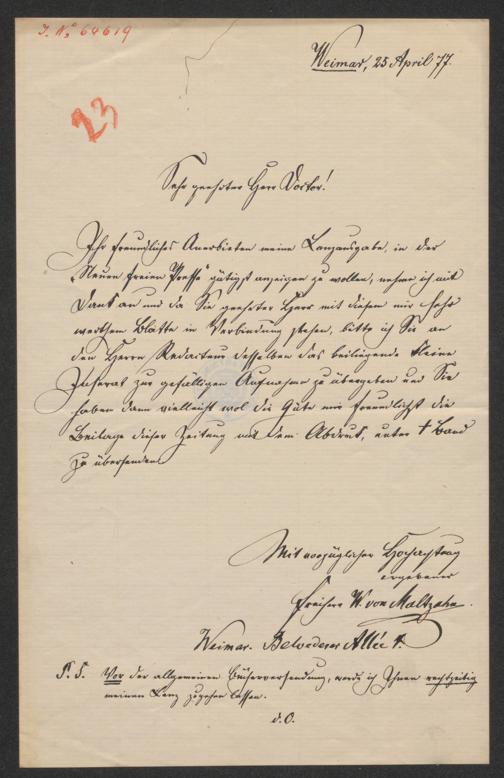 J. N. 64619
Weimar, 25 April 77.
23
Sehr geehrter Herr Doctor!
Ihr freundliches Anerbieten meine Lenzausgabe, in der
"Neuen freien Presse" gütigst anzeigen zu wollen, nehme ich mit
Dank an und da Sie geehrter Herr mit diesem mir sehr
werthem Blatte in Verbindung stehen, bitte ich Sie an
den Herrn Redacteur desselben das beiliegende kleine
Inserat zur gefälligen Aufnahme zu übergeben und Sie
haben dann vielleicht wol die Güte mir freundlichst die
Beilage dieser Zeitung mit dem Abdruck, unter † Band
zu übersenden.
Mit vorzüglicher Hochachtung
ergebener
Freiherr W. von Maltzahn.
Weimar. Belvederer Allée
P. S. Vor der allgemeinen Bücherversendung, werde ich Ihnen rechtzeitig
meinen Lenz zugehen lassen.
d. O.